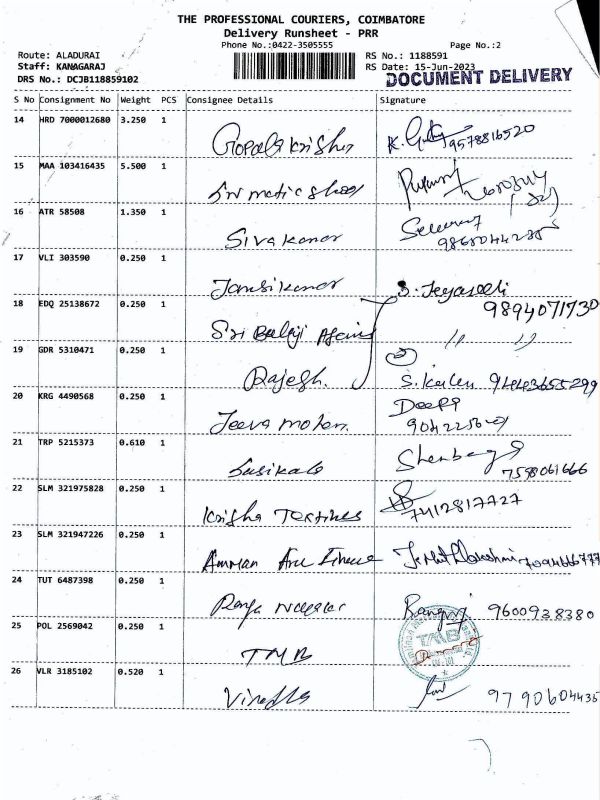 THE PROFESSIONAL COURIERS, COIMBATORE
Delivery Runsheet - PRR
Phone No.:0422-3505555 Page No.:2
Route: ALADURAI RS No.: 1188591
Staff: KANAGARAJ RS Date: 15-Jun-2023
DRS No.: DCJB118859102 DOCUMENT DELIVERY
S No Consignment No Weight PCS Consignee Details Signature
14 HRD 7000012680 3.250 1
Gopala Krishn 9578816520
15 MAA 103416435 5.500 1
16 ATR 58508 1.350 1
Siva kumar
17 VLI 303590 0.250 1
S. Jeyaseeli
9894071730
18 EDQ 25138672 0.250 1
Sri Balaji " "
19 GDR 5310471 0.250 1
Rajesh. 94443655299
20 KRG 4490568 0.250 1
Jeeva mohan. Deepp
21 TRP 5215373 0.610 1
Susikala 7598061666
22 SLM 321975828 0.250 1
Krisha Textiles 7412817727
23 SLM 321947226 0.250 1
Amman
24 TUT 6487398 0.250 1
Rangaraj 9600938380
25 POL 2569042 0.250 1
TMB
TMB
26 VLR 3185102 0.520 1
9790604435